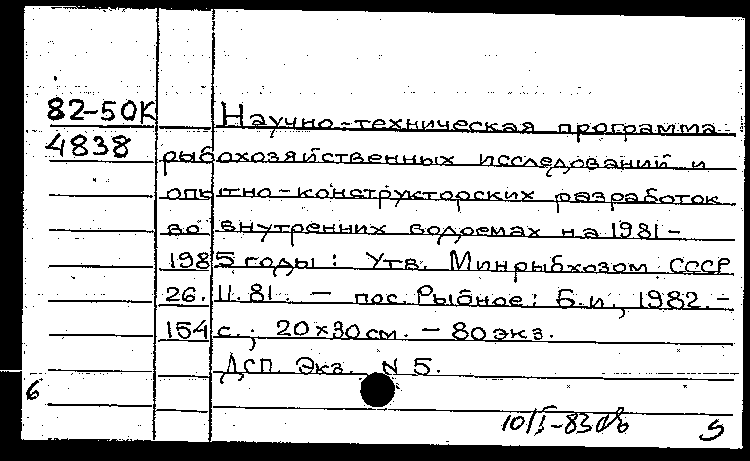 82-50К Научно-техническая программа
4838 рыбохозяйственных исследований и
опытно-конструкторских разработок
во внутренних водоемах на 1981-
1985 годы: Утв. Минрыбхозом СССР
26.11.81. — пос. Рыбное: Б.и., 1982.-
154 с.; 20×30 см. - 80 экз.
ДСП. Экз. N 5.
6
10/I-83